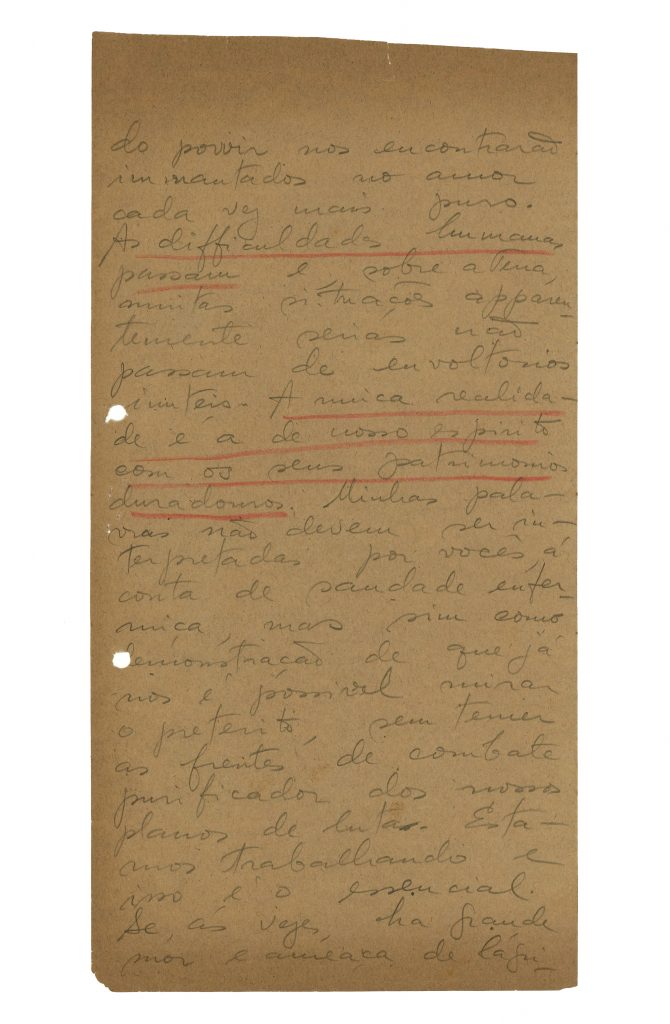 do porvir nos encontrarão
immantados no amor
cada vez mais puro.
As difficuldades humanas
passam e, sobre a Terra,
muitas situações apparen-
temente serias não
passam de envoltorios
inuteis. A unica realida-
de é a de nosso espirito
com os seus patrimonios
duradouros. Minhas pala-
vras não devem ser in-
terpretadas por vocês, á
conta de saudade enfer-
miça, mas sim como
demonstração de que já
nos é possivel mirar
o preterito, sem temer
as frentes de combate
purificador dos nossos
planos de luta. Esta-
mos trabalhando e
isso é o essencial.
Se, ás vezes, ha grande
e ameaça de lágri-